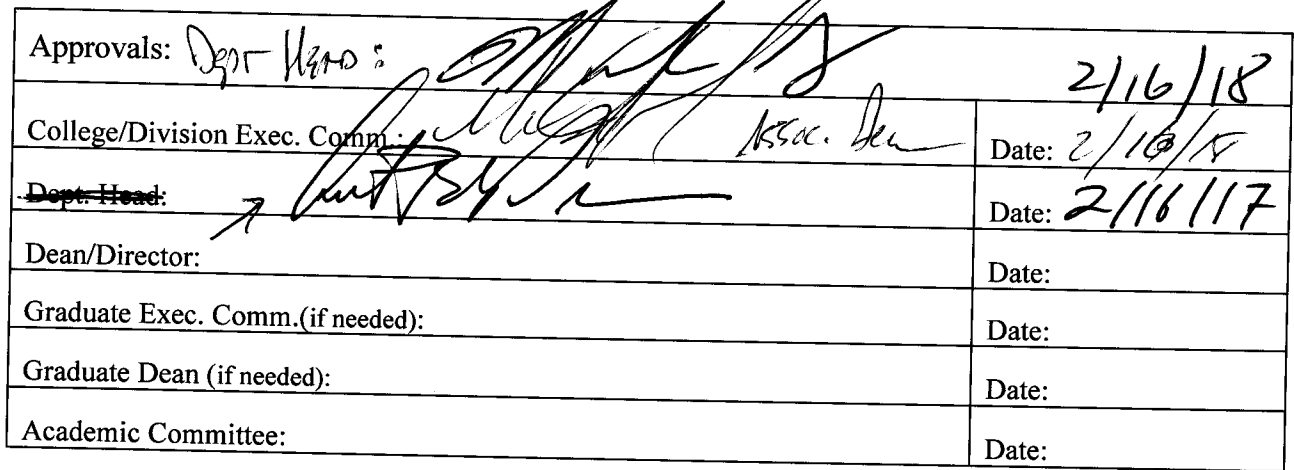 Approvals: Dept Head: 2/16/18
College/Division Exec. Comm.: Assoc. Dean Date: 2/16/18
Dept. Head: Date: 2/16/17
Dean/Director: Date:
Graduate Exec. Comm.(if needed): Date:
Graduate Dean (if needed): Date:
Academic Committee: Date: